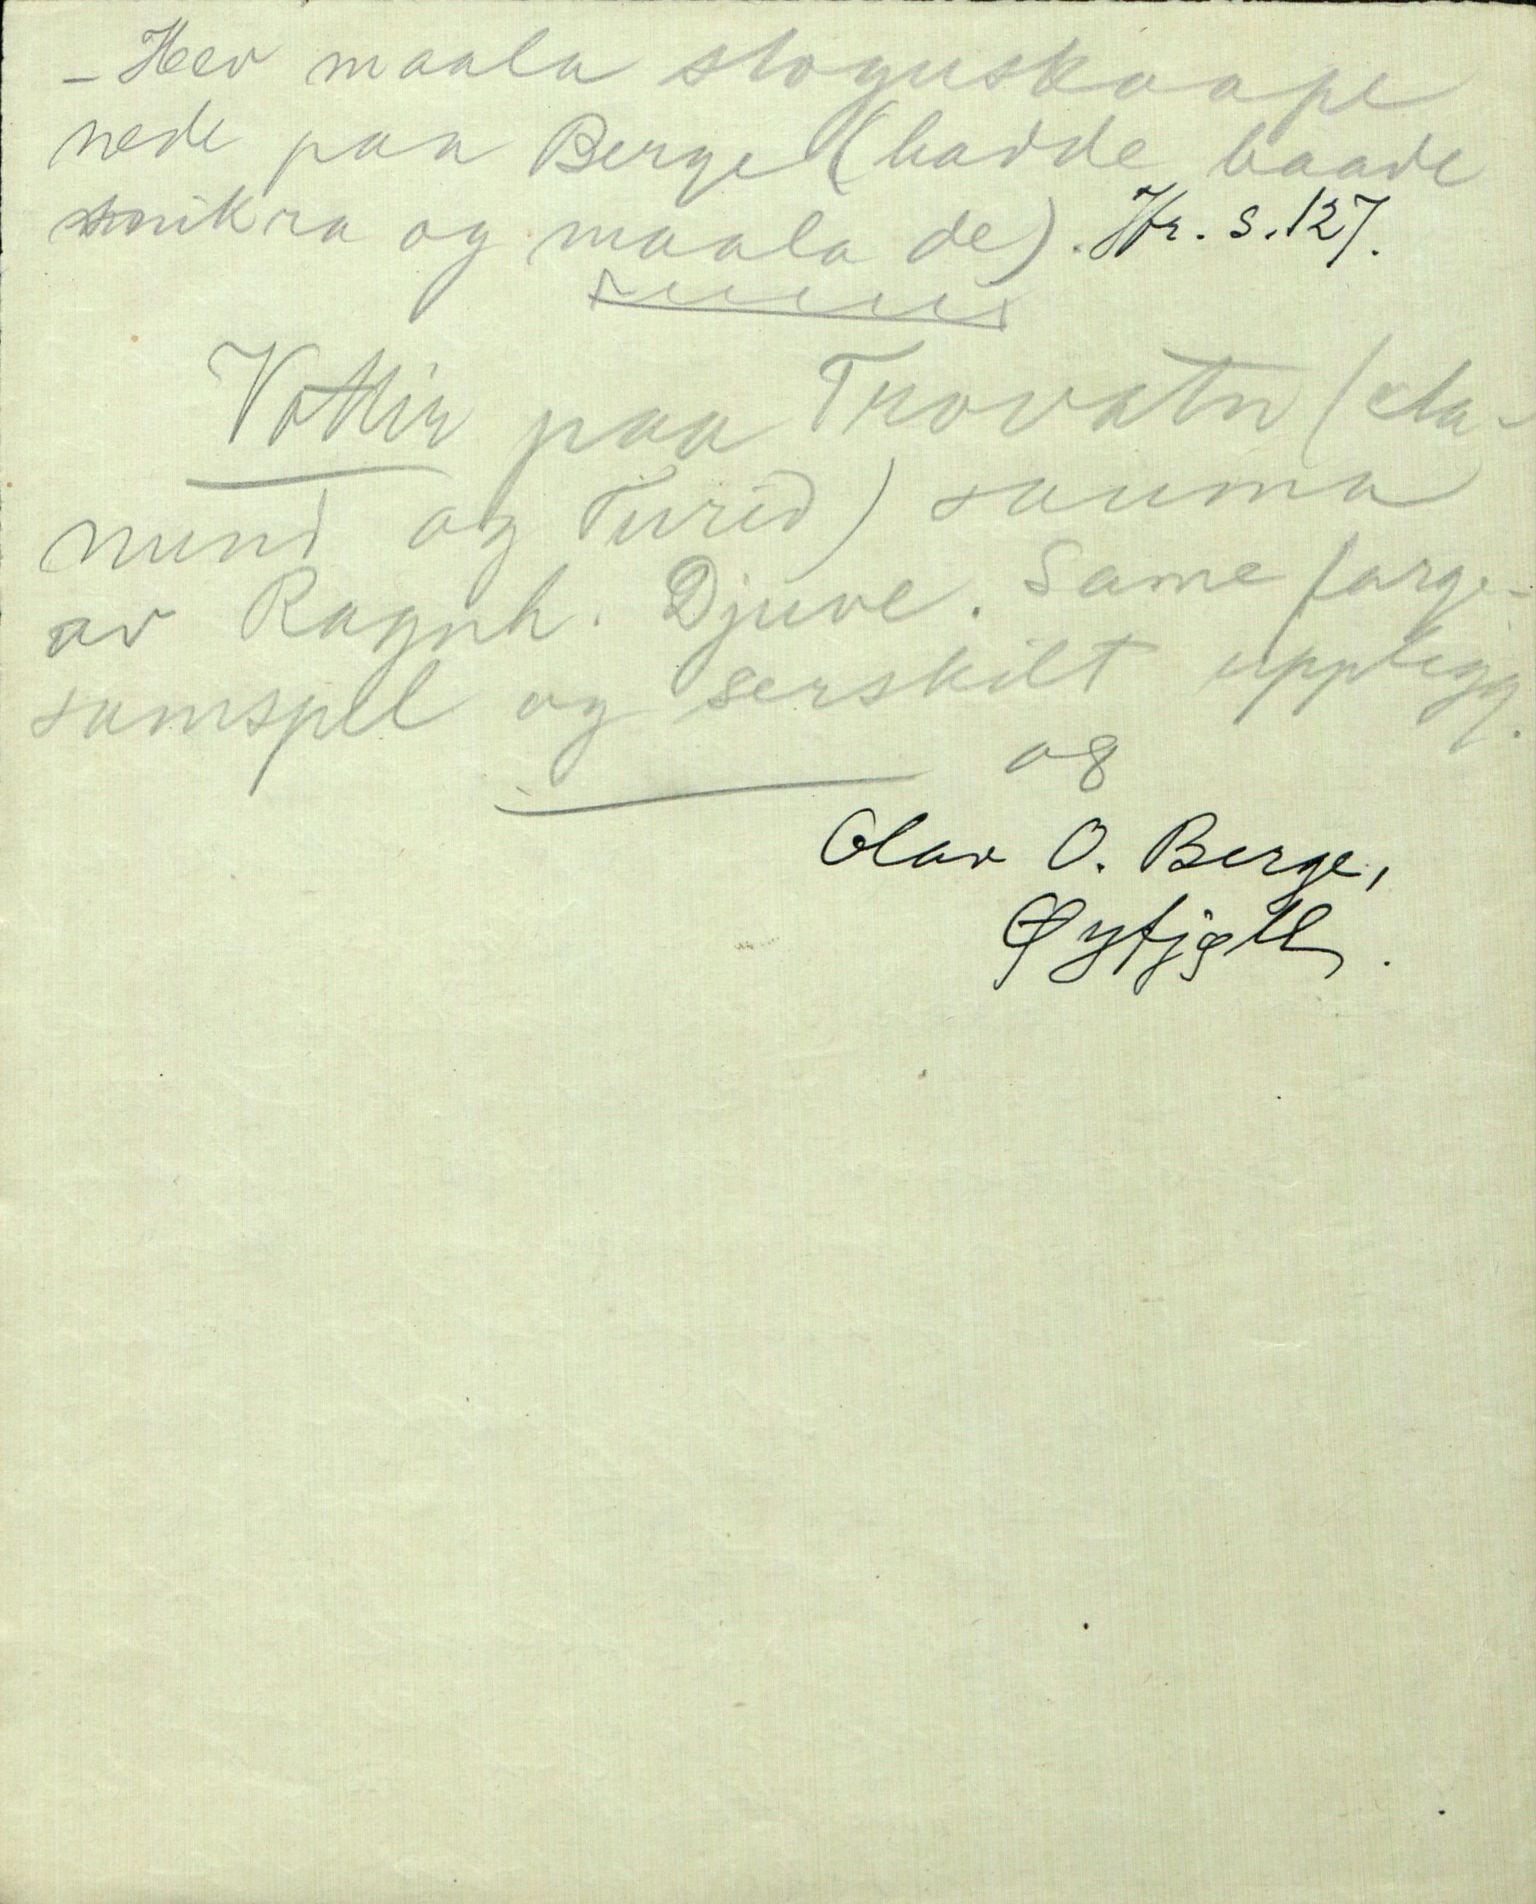 - Hev maala stoguskaape
nede paa Berge (hadde baade
snikra og maala de). Jfr. s. 127.
Vottir paa Trovatn (Aa-
mund og Turid) sauma
av Ragnh. Djuve. Same farge-
samspel og serskilt upplegg.
og
Olav O. Berge,
Øyfjell.